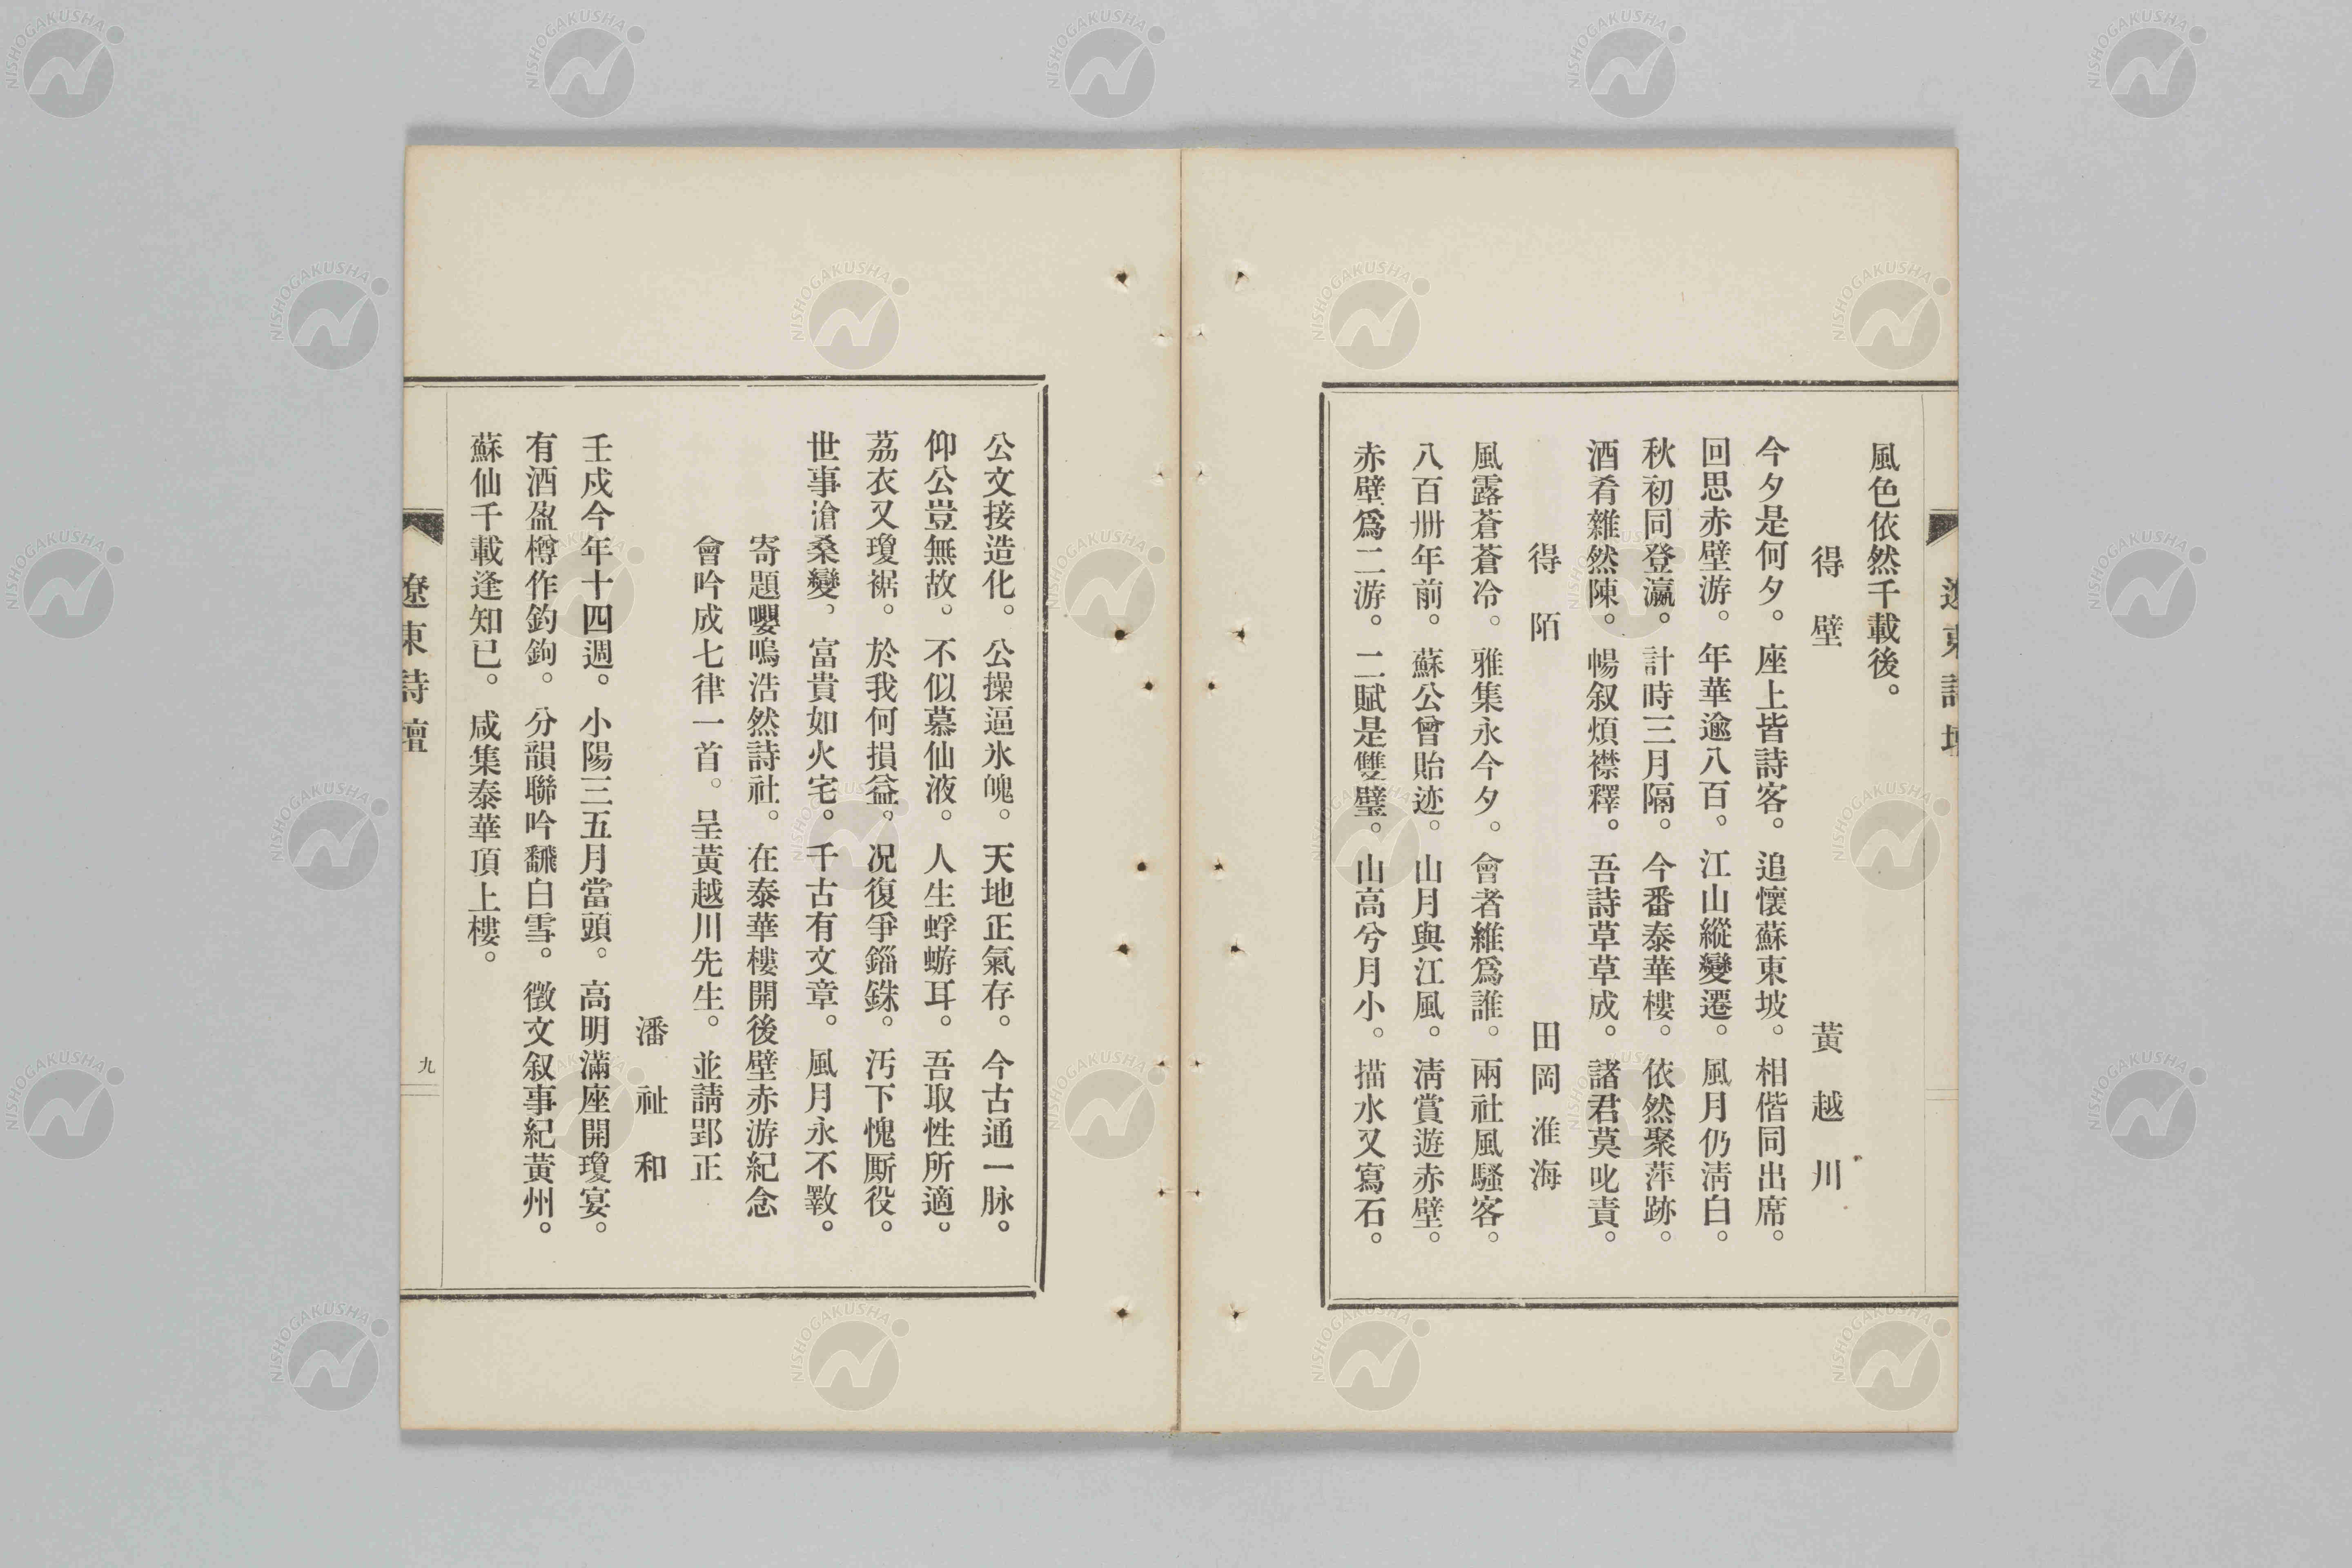 風色依然千載後。
得壁　黃越川
今夕是何夕。座上皆詩客。追懷蘇東坡。相偕同出席。
回思赤壁游。年華逾八百。江山縱變遷。風月仍淸白。
秋初同登瀛。計時三月隔。今番泰華樓。依然聚萍跡。
酒肴雜然陳。暢叙煩襟釋。吾詩草草成。諸君莫叱責。
得陌　田岡淮海
風露蒼蒼冷。雅集永今夕。會者維爲誰。兩社風騷客。
八百卌年前。蘇公曾貽迹。山月與江風。淸賞遊赤壁。
赤壁爲二游。二賦是雙璧。山高兮月小。描水又寫石。
公文接造化。公操逼氷魄。天地正氣存。今古通一脉。
仰公豈無故。不似慕仙液。人生蜉蝣耳。吾取性所適。
荔衣又瓊裾。於我何損益。况復爭錙銖。汚下愧厮役。
世事滄桑變。富貴如火宅。千古有文章。風月永不斁。
寄題嚶鳴浩然詩社。在泰華樓開後壁赤游紀念
會吟成七律一首。呈黃越川先生。並請郢正
潘祉和
壬戍今年十四週。小陽三五月當頭。高明滿座開瓊宴。
有酒盈樽作釣鉤。分韻聯吟飜白雪。徵文叙事紀黃州。
蘇仙千載逢知已。咸集泰華頂上樓。
遼東詩壇
九